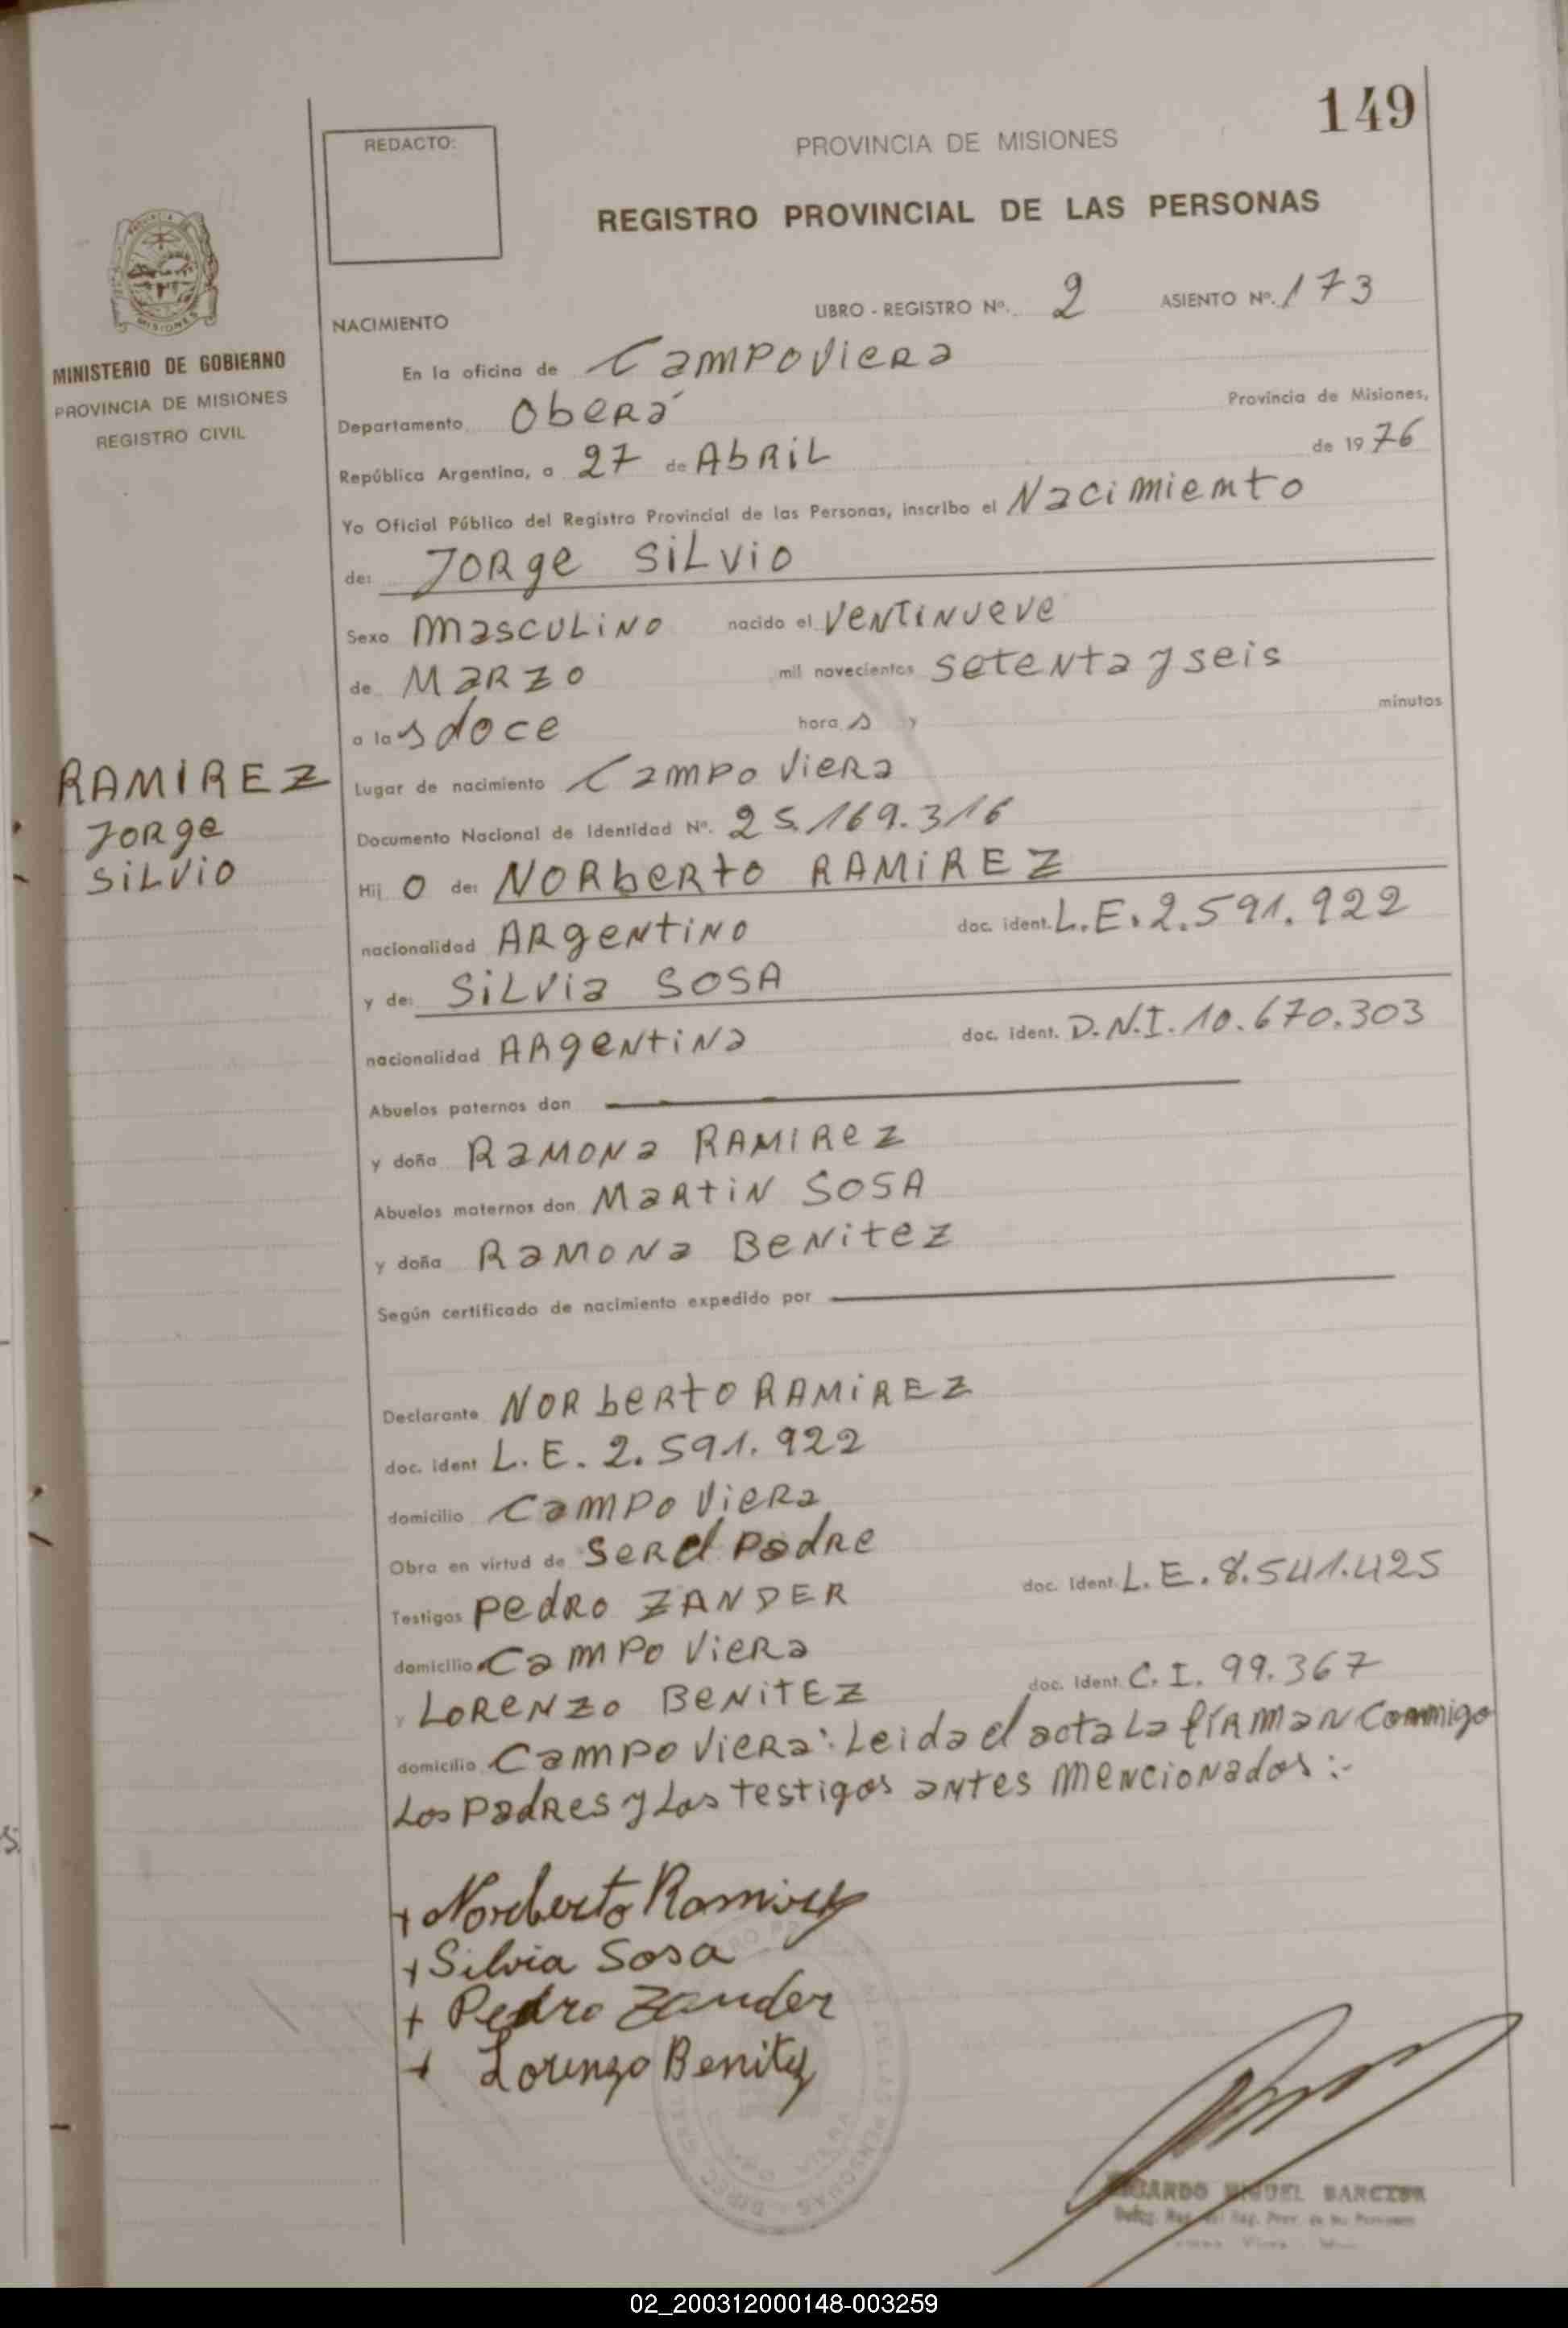 149
REDACTO:
PROVINCIA DE MISIONES
REGISTRO PROVINCIAL DE LAS PERSONAS
MISIONES
MINISTERIO DE GOBIERNO
PROVINCIA DE MISIONES
REGISTRO CIVIL
NACIMIENTO
LIBRO - REGISTRO Nº. 2 ASIENTO Nº. 173
En la oficina de Campo Viera
Departamento Oberá Provincia de Misiones,
República Argentina, a 27 de Abril de 1976
Yo Oficial Público del Registro Provincial de las Personas, inscribo el Nacimiento
de: Jorge Silvio
Sexo masculino nacido el ventinueve
de Marzo mil novecientos setenta y seis
a las doce horas y minutos
RAMIREZ
Jorge
Silvio
Lugar de nacimiento Campo Viera
Documento Nacional de Identidad Nº. 25.169.316
Hijo de: Norberto RAMIREZ
nacionalidad Argentino doc. ident. L.E. 2.591.922
y de: Silvia SOSA
nacionalidad Argentina doc. ident. D.N.I. 10.670.303
Abuelos paternos don
y doña Ramona RAMIREZ
Abuelos maternos don Martin SOSA
y doña Ramona BENITEZ
Según certificado de nacimiento expedido por
Declarante Norberto RAMIREZ
doc. ident L.E. 2.591.922
domicilio Campo Viera
Obra en virtud de ser el padre
Testigos Pedro ZANDER doc. ident. L.E. 8.541.425
domicilio Campo Viera
y Lorenzo BENITEZ doc. ident. C.I. 99.367
domicilio Campo Viera: Leida el acta la firman conmigo
los padres y los testigos antes mencionados:-
+ Norberto Ramirez
+ Silvia Sosa
+ Pedro Zander
+ Lorenzo Benitez
02_200312000148-003259